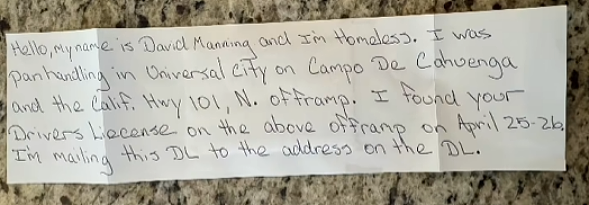 Hello, my name is David Manning and I'm Homeless. I was
panhandling in Universal City on Campo De Cahuenga
and the Calif. Hwy 101, N. offramp. I found your
Drivers Liecense on the above offramp on April 25-26.
I'm mailing this DL to the address on the DL.